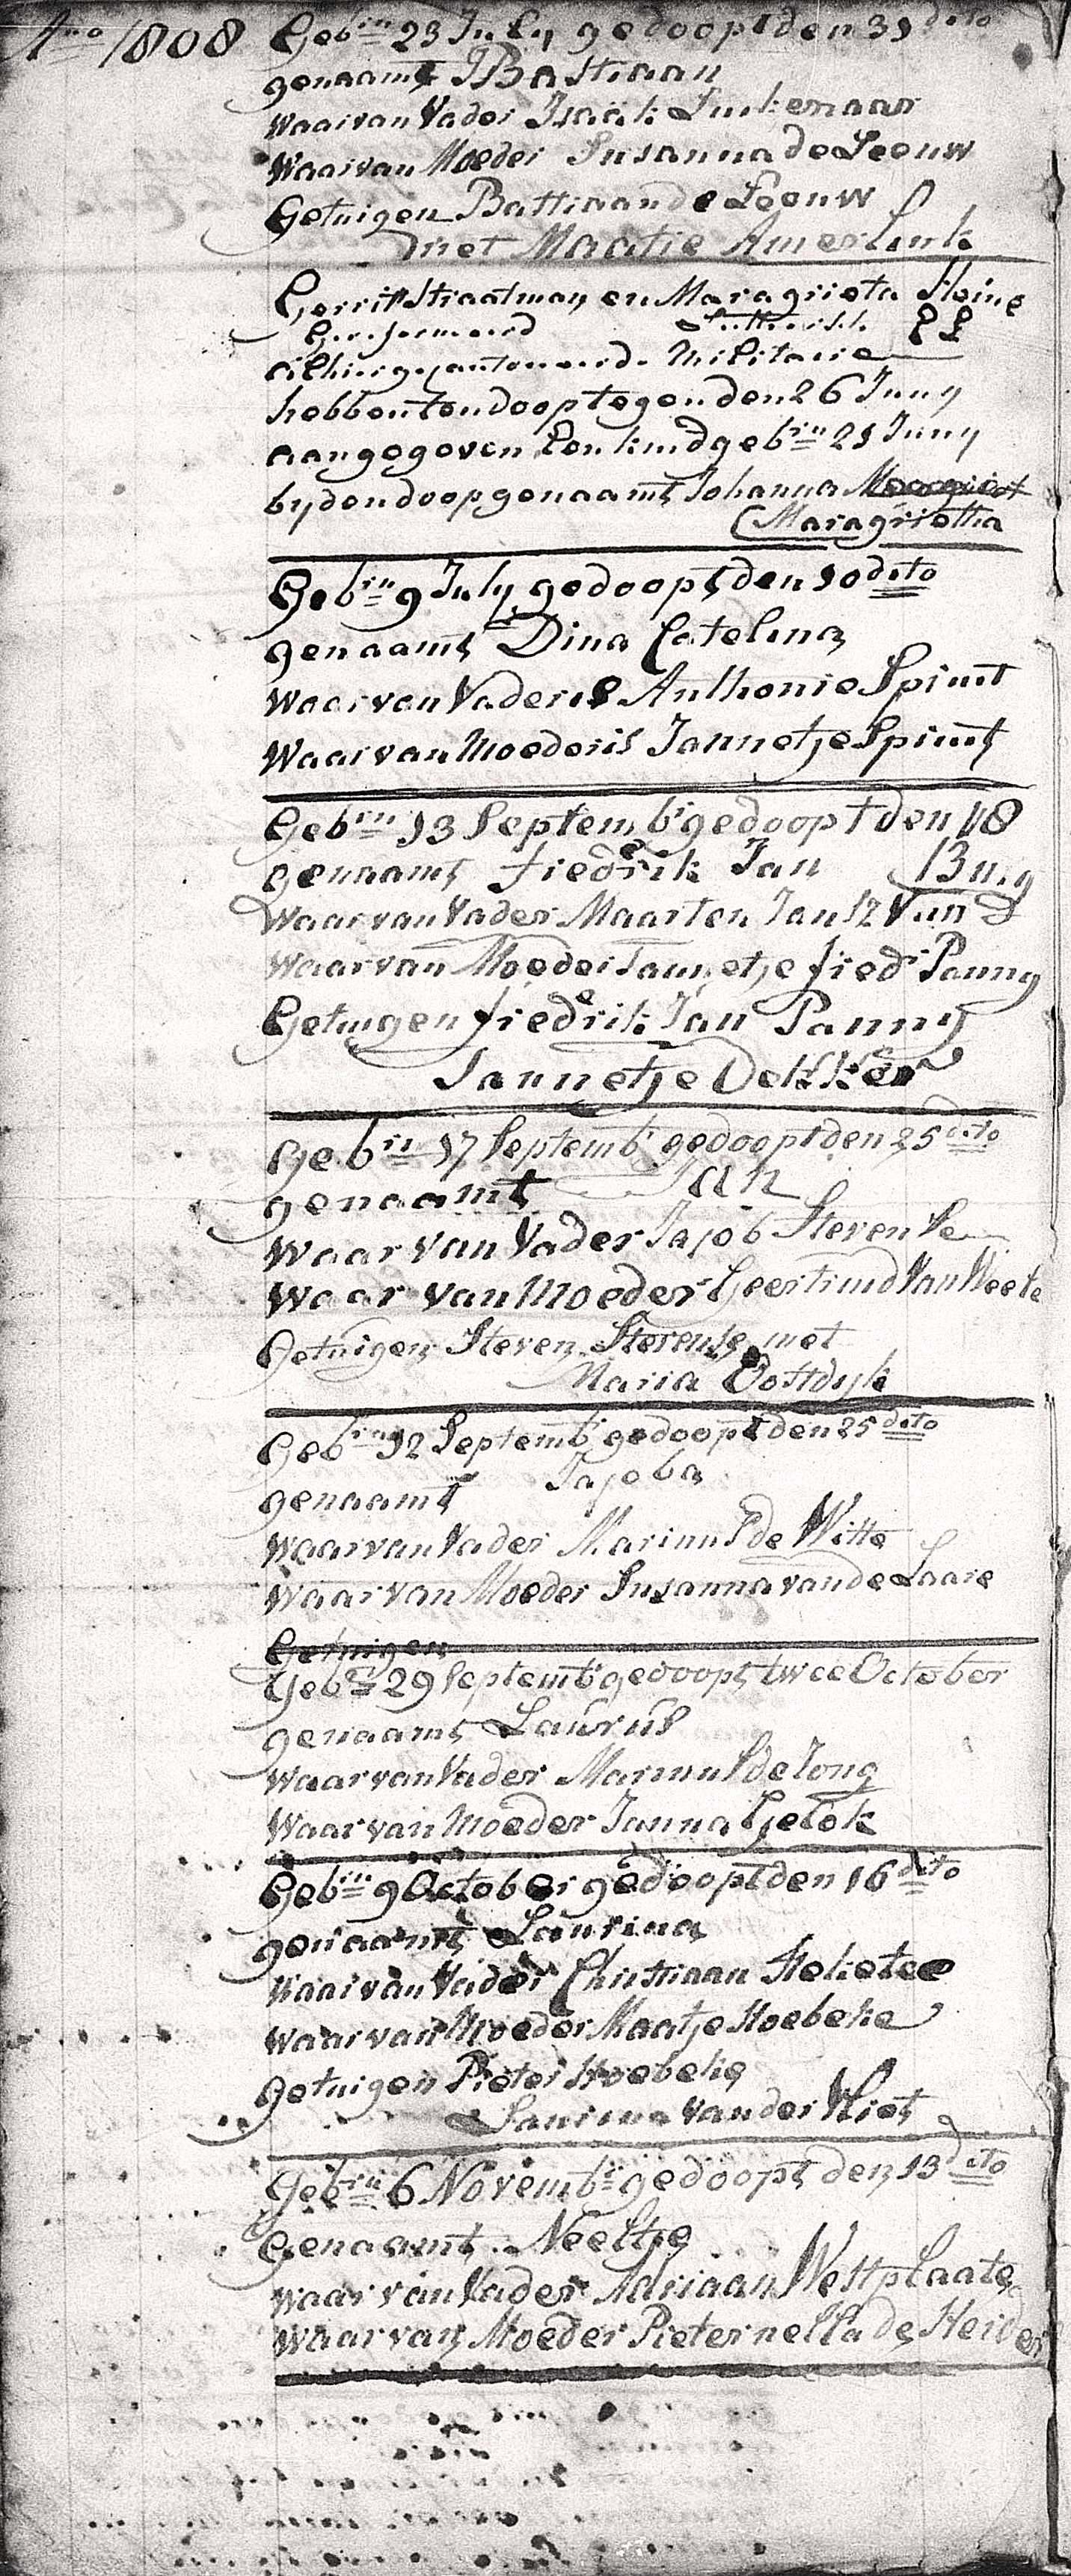 Ano 1808 Gebin 23 July gedoopt den 31 dito
genaamt Bastiaan
Waarvan Vader Isaak Sinkemaar
Waarvan Moeder Susanna de Leeuw
Getuigen Battiaan de Leeuw
met Maatie Amerlink
Gerrit Straatman en Maragrieta Steins
Gereformeerd Luthersch EL
alhier gecantoneerde Militaire
hebben ten doop tegen den 26 Juny
aangegeven Een kind gebin 21 Juny
by den doop genaamt Johanna
Maragrietha
Gebin 9 July gedoopt den 10 dito
genaamt Dina Catelina
Waarvan Vader is Anthonie Spruit
Waarvan Moeder is Jannetje Spruit
Gebin 13 Septembr gedoopt den 18
genaamt fredrik Jan
Waarvan Vader Maarten Jan
Waarvan Moeder Jannetje fred Panny
Getuigen fredrik Jan Panny
Jannetje Dekker
Gebin 17 Septembr gedoopt den 25 dito
genaamt Jan
Waar van Vader Jajob Stevense
Waar van Moeder Geertruid Van Weele
Getuigen Steven Stevense met
Maria Oostdyk
Gebin 12 Septembr gedoopt den 25 dito
genaamt Jajoba
Waarvan Vader Marinus de Witte
Waarvan Moeder Susanna van de Laare
Getuigen
Gebin 29 Septembr gedoopt twee October
genaamt Laurus
Waarvan Vader Marinus de Jong
Waarvan Moeder Janna Gelok
Gebin 9 October gedoopt den 16 dito
genaamt Laurina
Waarvan Vader Christiaan Steketee
Waarvan Moeder Maatje Hoebeke
getuigen Pieter Hoebeke
Laurina Van der Vliet
Gebin 6 Novembr gedoopt den 13 dito
Genaamt Neeltje
Waar van Vader Adriaan Westplaate
Waar van Moeder Pieternella de Heider